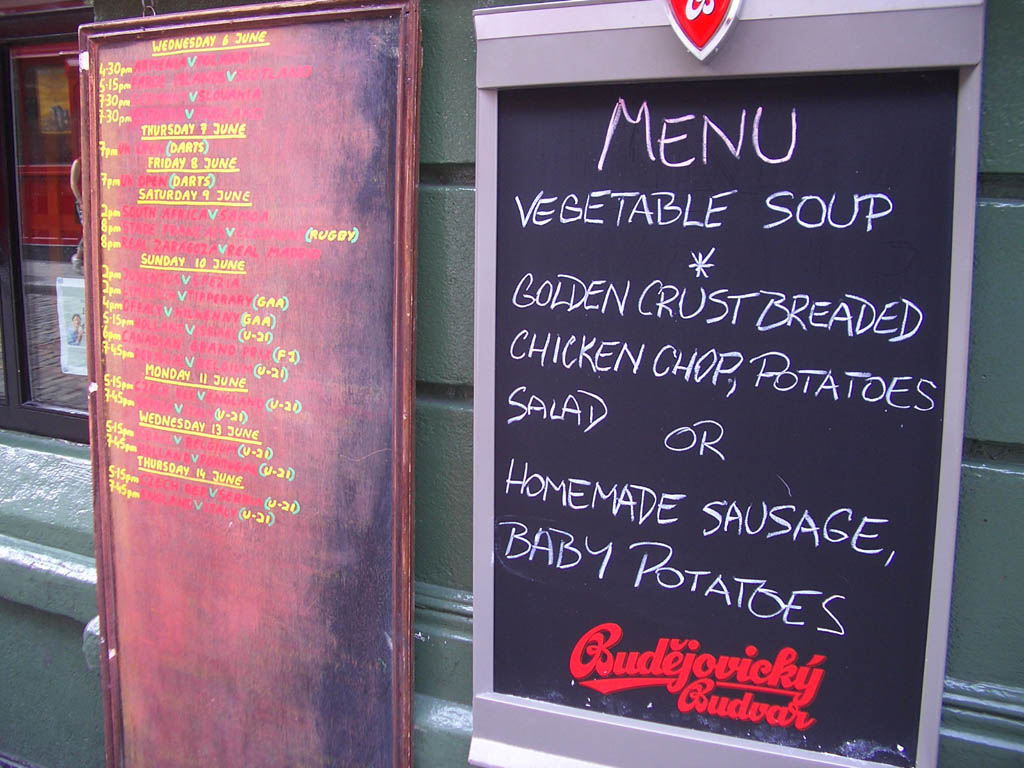 WEDNESDAY 6 JUNE
4·30pm ARMENIA V POLAND
5·15pm FAROE ISLANDS V SCOTLAND
7·30pm V SLOVANIA
7·30pm V
THURSDAY 7 JUNE
7pm UK OPEN (DARTS)
FRIDAY 8 JUNE
7pm UK OPEN (DARTS)
SATURDAY 9 JUNE
2pm SOUTH AFRICA V SAMOA
8pm STADE FRANCAIS V CLERMONT (RUGBY)
8pm REAL ZARAGOZA V REAL MADRID
SUNDAY 10 JUNE
2pm V SPEZIA
2pm V TIPPERARY (GAA)
4pm OFFALY V KILKENNY (GAA)
5·15pm HOLLAND V ISRAEL (U-21)
6pm CANADIAN GRAND PRIX (F1)
7·45pm PORTUGAL V BELGIUM (U-21)
MONDAY 11 JUNE
5·15pm CZECH REP V ENGLAND (U-21)
7·45pm V (U-21)
WEDNESDAY 13 JUNE
5·15pm V (U-21)
7·45pm HOLLAND V PORTUGAL (U-21)
THURSDAY 14 JUNE
5·15pm CZECH REP V SERBIA (U-21)
7·45pm ENGLAND V ITALY (U-21)
MENU
VEGETABLE SOUP
*
GOLDEN CRUST BREADED
CHICKEN CHOP, POTATOES
SALAD
OR
HOMEMADE SAUSAGE,
BABY POTATOES
Budějovický
Budvar